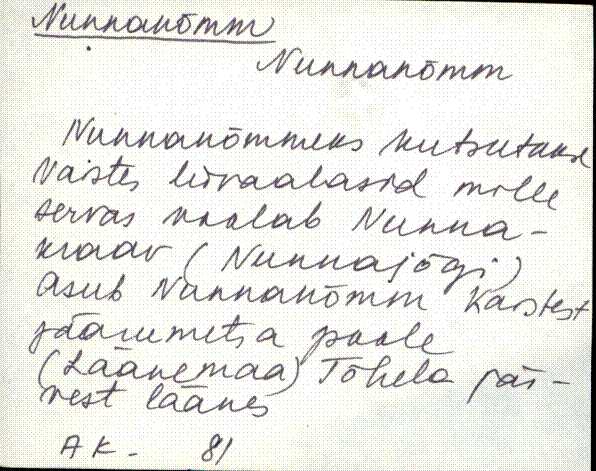 Nunnanõmm
Nunnanõmm
Nunnanõmmeks kutsutakse
Naistes liivaalasid mille
servas voolab Nunna-
kraav (Nunnajõgi)
Asub Nunnanõmm Kaistest
jäärumetsa poole
(Läänemaa) Tõhela jär-
vest läänes
AK. 81